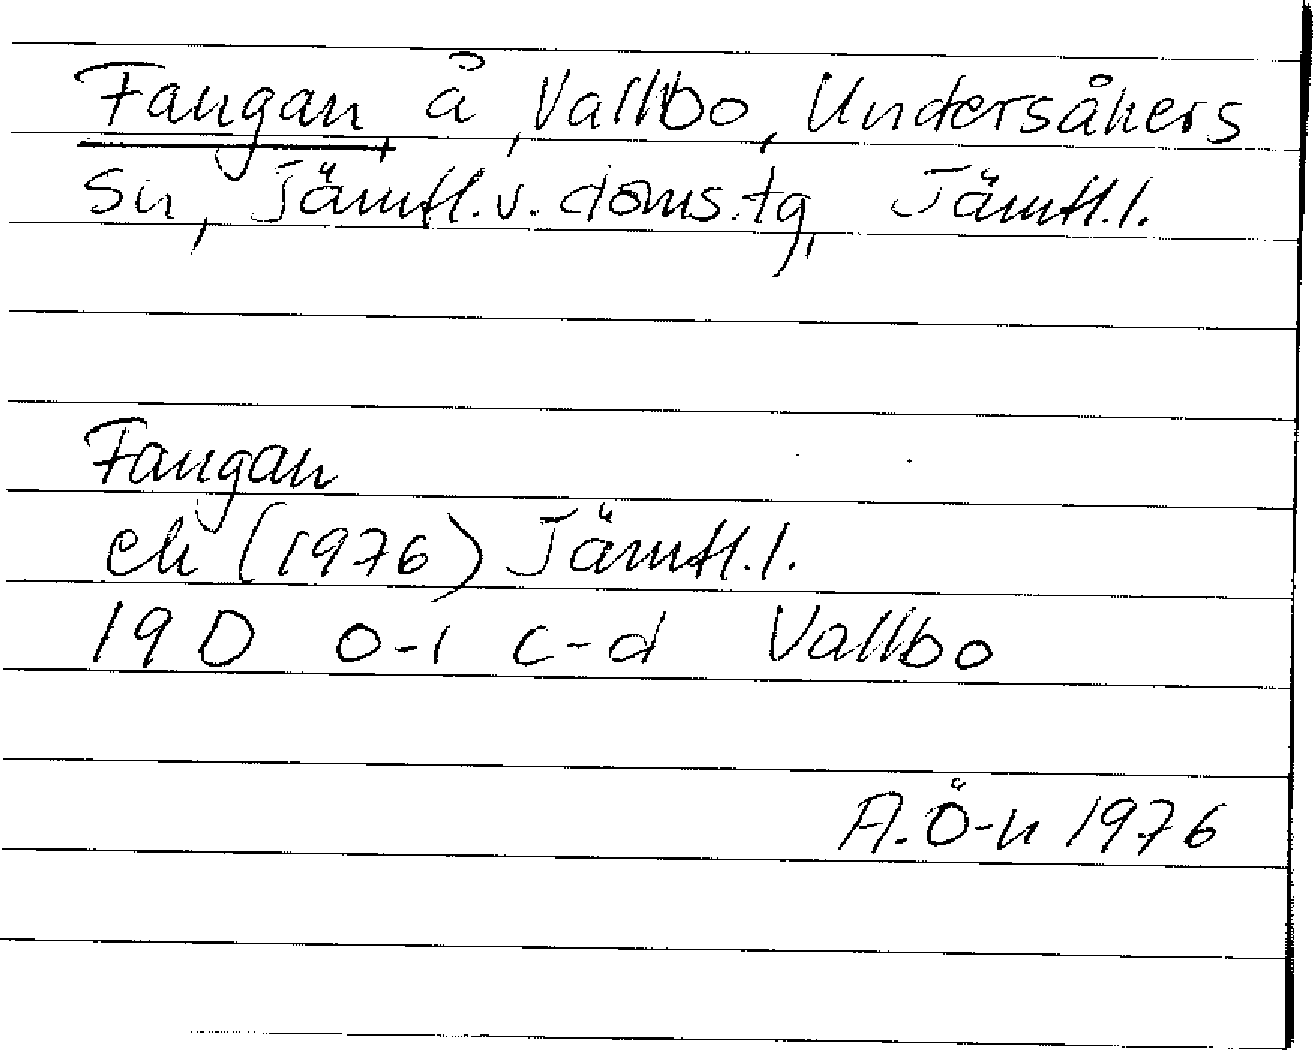 Fangan, å, Vallbo, Undersåkers
sn, Jämtl.v. doms.tg, Jämtl.l.
Fangan
ek (1976) Jämtl.l.
19 D 0-1 c-d Vallbo
A.Ö-n 1976